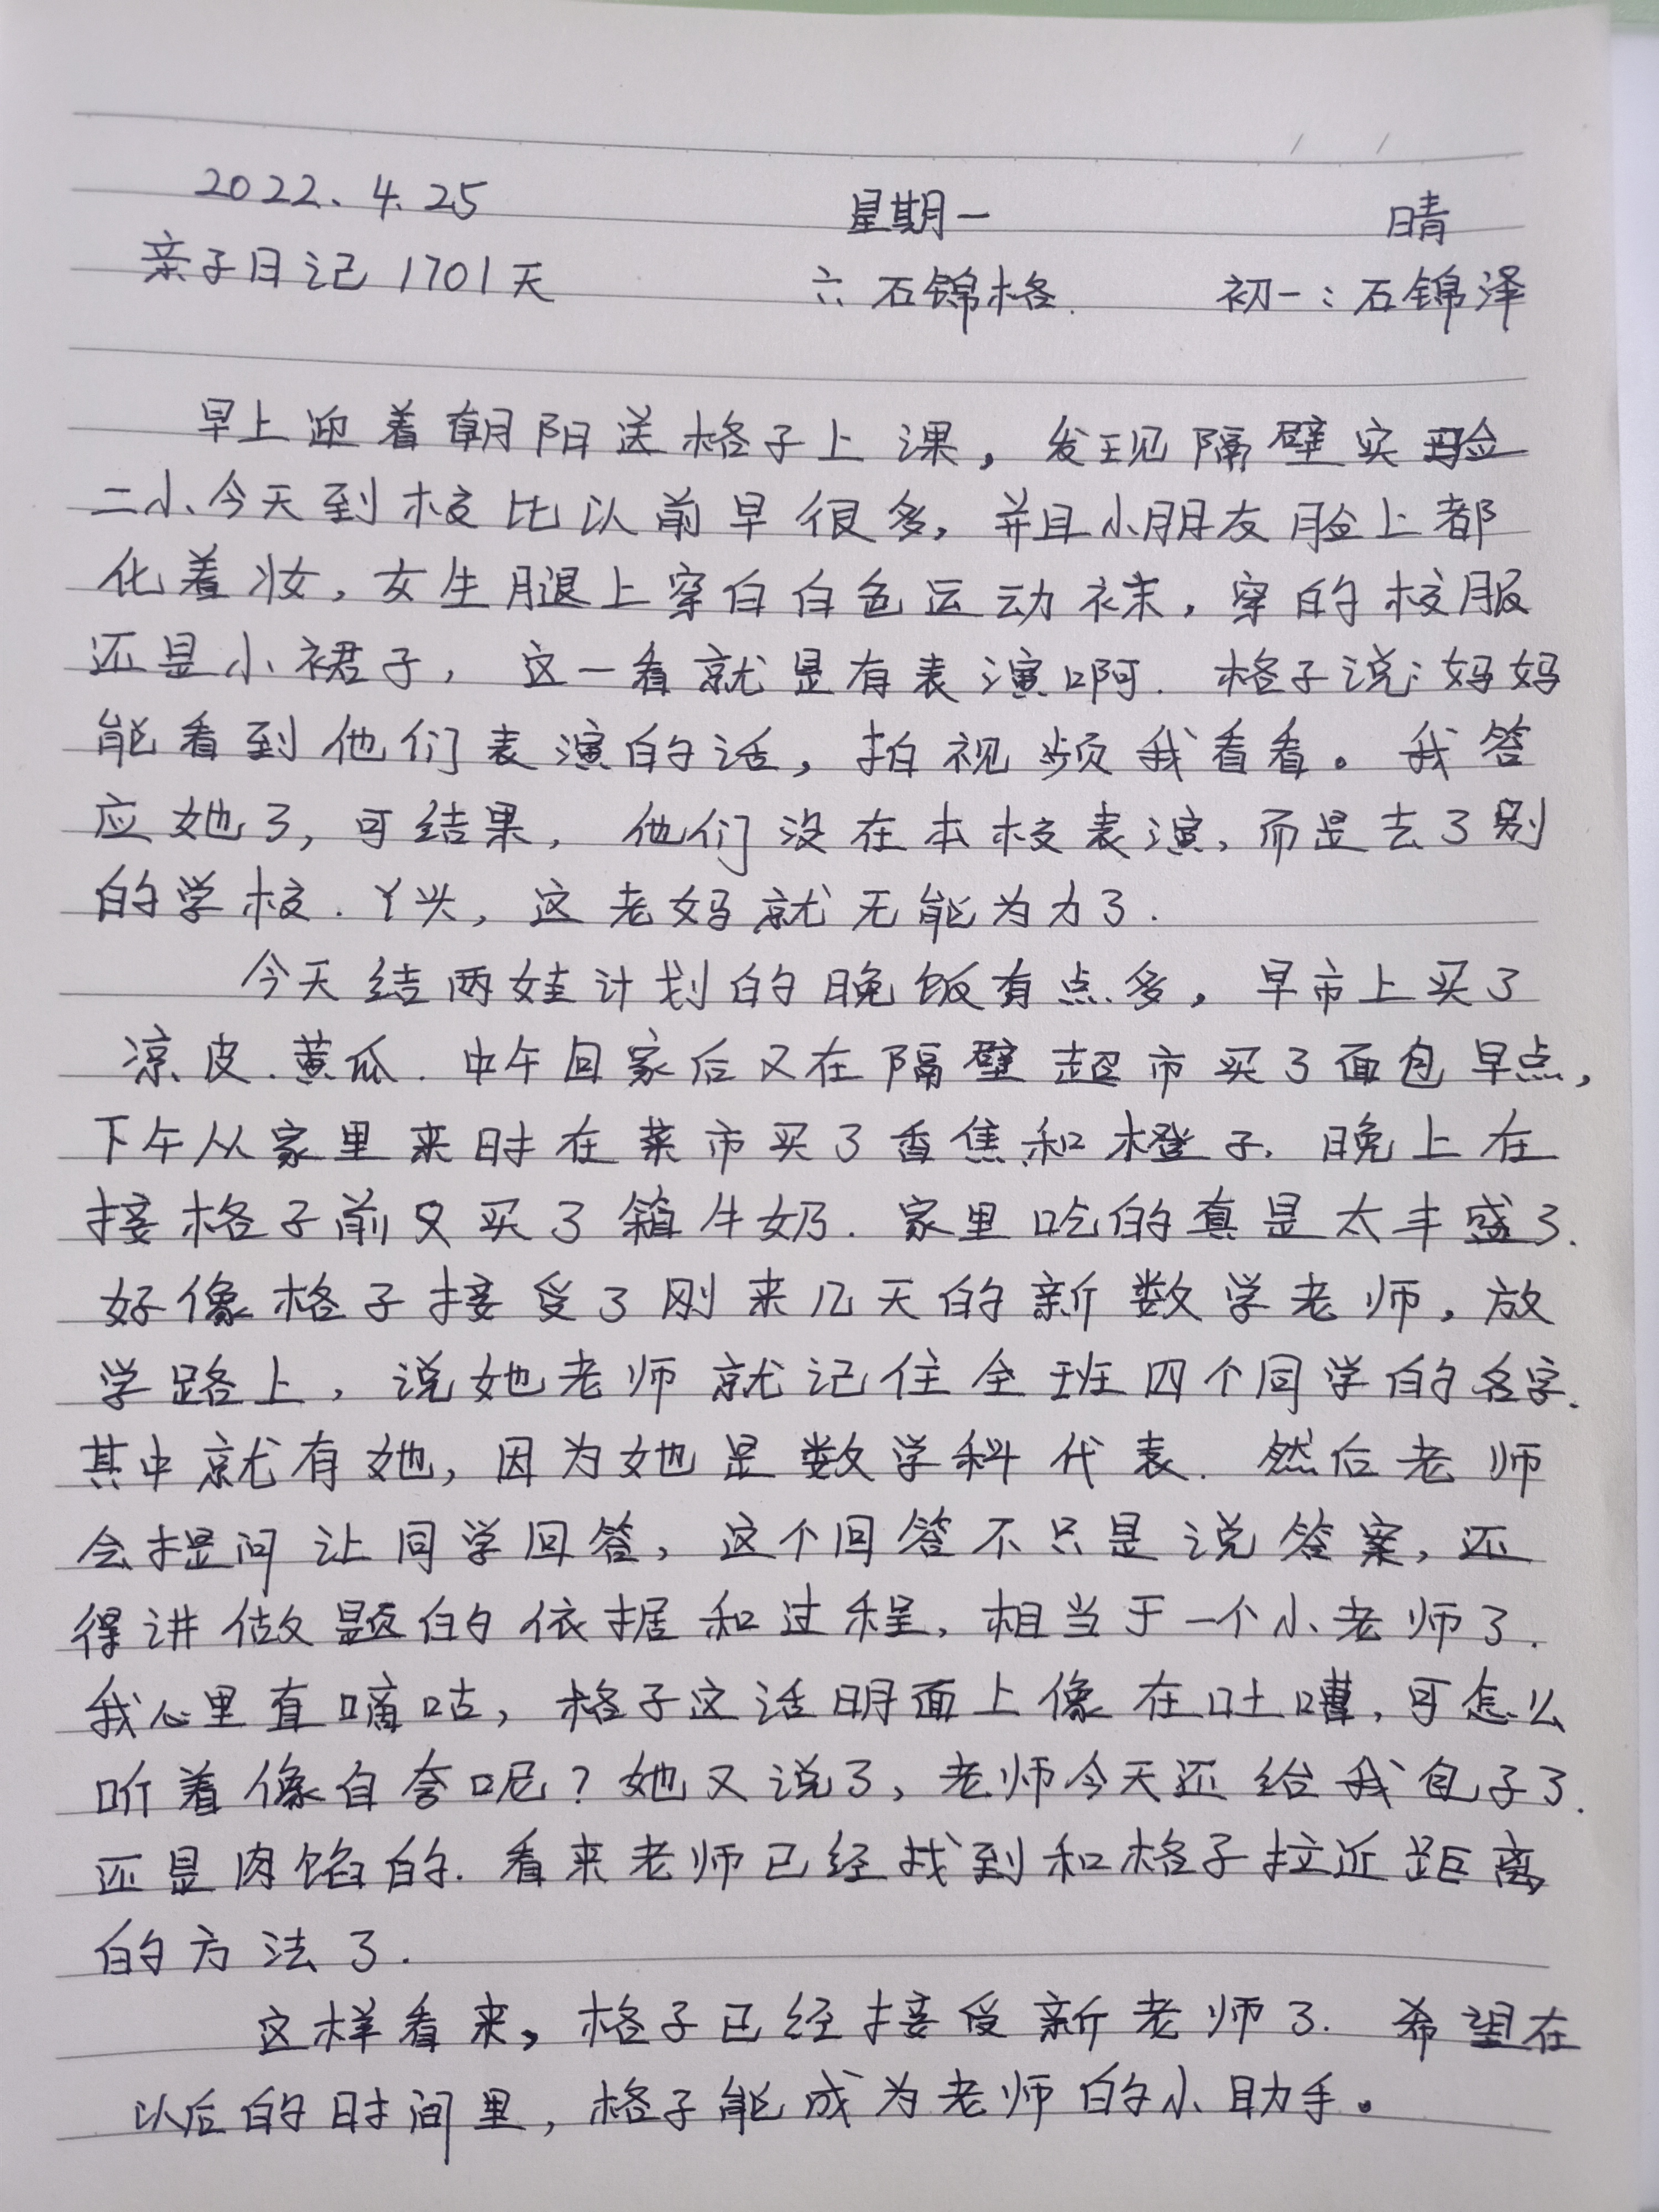 2022、4.25 星期一 晴
亲子日记1701天 六:石锦格. 初一:石锦泽
早上迎着朝阳送格子上课,发现隔壁实验
二小今天到校比以前早很多,并且小朋友脸上都
化着妆,女生腿上穿白白色运动袜,穿的校服
还是小裙子,这一看就是有表演啊.格子说:妈妈
能看到他们表演的话,拍视频我看看。我答
应她了,可结果,他们没在本校表演,而是去了别
的学校.丫头,这老妈就无能为力了.
今天给两娃计划的晚饭有点多,早市上买了
凉皮.黄瓜.中午回家后又在隔壁超市买了面包早点,
下午从家里来时在菜市买了香焦和橙子.晚上在
接格子前又买了箱牛奶.家里吃的真是太丰盛了.
好像格子接受了刚来几天的新数学老师,放
学路上,说她老师就记住全班四个同学的名字.
其中就有她,因为她是数学科代表.然后老师
会提问让同学回答,这个回答不只是说答案,还
得讲做题的依据和过程,相当于一个小老师了.
我心里直嘀咕,格子这话明面上像在吐嘈,可怎么
听着像自夸呢?她又说了,老师今天还给我包子了.
还是肉馅的.看来老师已经找到和格子拉近距离
的方法了.
这样看来,格子已经接受新老师了.希望在
以后的时间里,格子能成为老师的小助手。